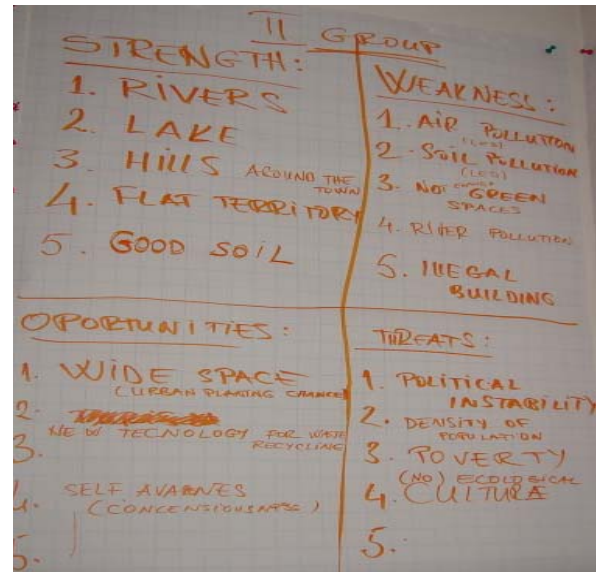 II GROUP
STRENGTH:
1. RIVERS
2. LAKE
3. HILLS AROUND THE
TOWN
4. FLAT TERRITORY
5. GOOD SOIL
WEAKNESS:
1. AIR POLLUTION
(LES)
2. SOIL POLLUTION
(LES)
3. NOT GREEN
SPACES
4. RIVER POLLUTION
5. ILLEGAL
BUILDING
OPORTUNITIES:
1. WIDE SPACE
(URBAN PLANING CHANCE)
2.
NEW TECNOLOGY FOR WASTE
RECYCLING
3.
4. SELF AVARNES
(CONCENSIOUSNESS)
5.
THREATS:
1. POLITICAL
INSTABILITY
2. DENSITY OF
POPULATION
3. POVERTY
(NO) ECOLOGICAL
4. CULTURE
5.